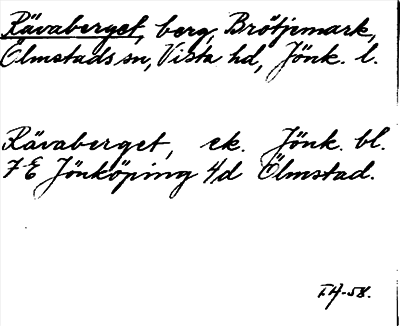 Rävaberget, berg, Brötjemark,
Ölmstads sn, Vista hd, Jönk. l.
Rävaberget, ek. Jönk. bl.
7E Jönköping 4/d Ölmstad.
TH-58.